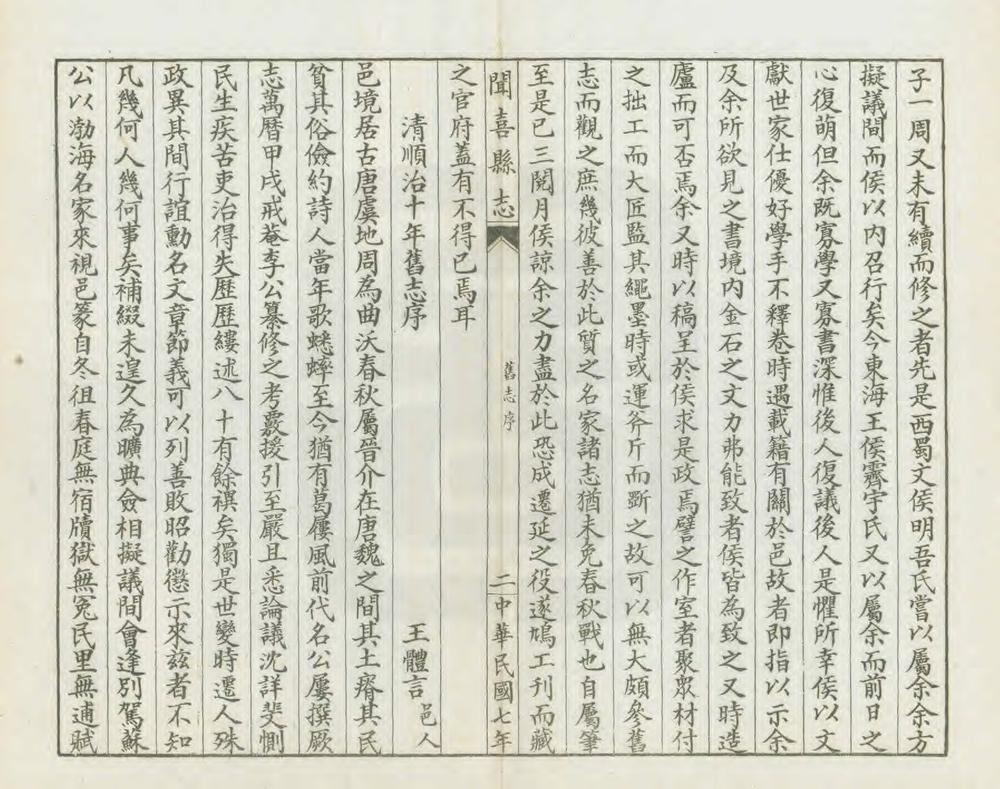 子一周又未有續而修之者先是西蜀文侯明吾氏嘗以屬余余方
擬議間而侯以內召行矣今東海王侯霽宇氏又以屬余而前日之
心復萌但余既寡學又寡書深惟後人復議後人是懼所幸侯以文
獻世家仕優好學手不釋卷時遇載籍有關於邑故者即指以示余
及余所欲見之書境內金石之文力弗能致者侯皆為致之又時造
廬而可否焉余又時以稿呈於侯求是政焉譬之作室者聚眾材付
之拙工而大匠監其繩墨時或運斧斤而斲之故可以無大頗參舊
志而觀之庶幾彼善於此質之名家諸志猶未免春秋戰也自屬筆
至是已三閱月侯諒余之力盡於此恐成遷延之役遂鳩工刊而藏
之官府蓋有不得已焉耳
聞喜縣志
舊志序
二
中華民國七年
清順治十年舊志序
王體言邑人
邑境居古唐虞地周為曲沃春秋屬晉介在唐魏之間其土瘠其民
貧其俗儉約詩人當年歌蟋蟀至今猶有葛屨風前代名公屢撰厥
志萬曆甲戌戒菴李公纂修之考覈援引至嚴且悉論議沈詳斐惻
民生疾苦吏治得失歷歷縷述八十有餘禩矣獨是世變時遷人殊
政異其間行誼勳名文章節義可以列善敗昭勸懲示來茲者不知
凡幾何人幾何事矣補綴未遑久為曠典僉相擬議間會逢別駕蘇
公以渤海名家來視邑篆自冬徂春庭無宿牘獄無冤民里無逋賦